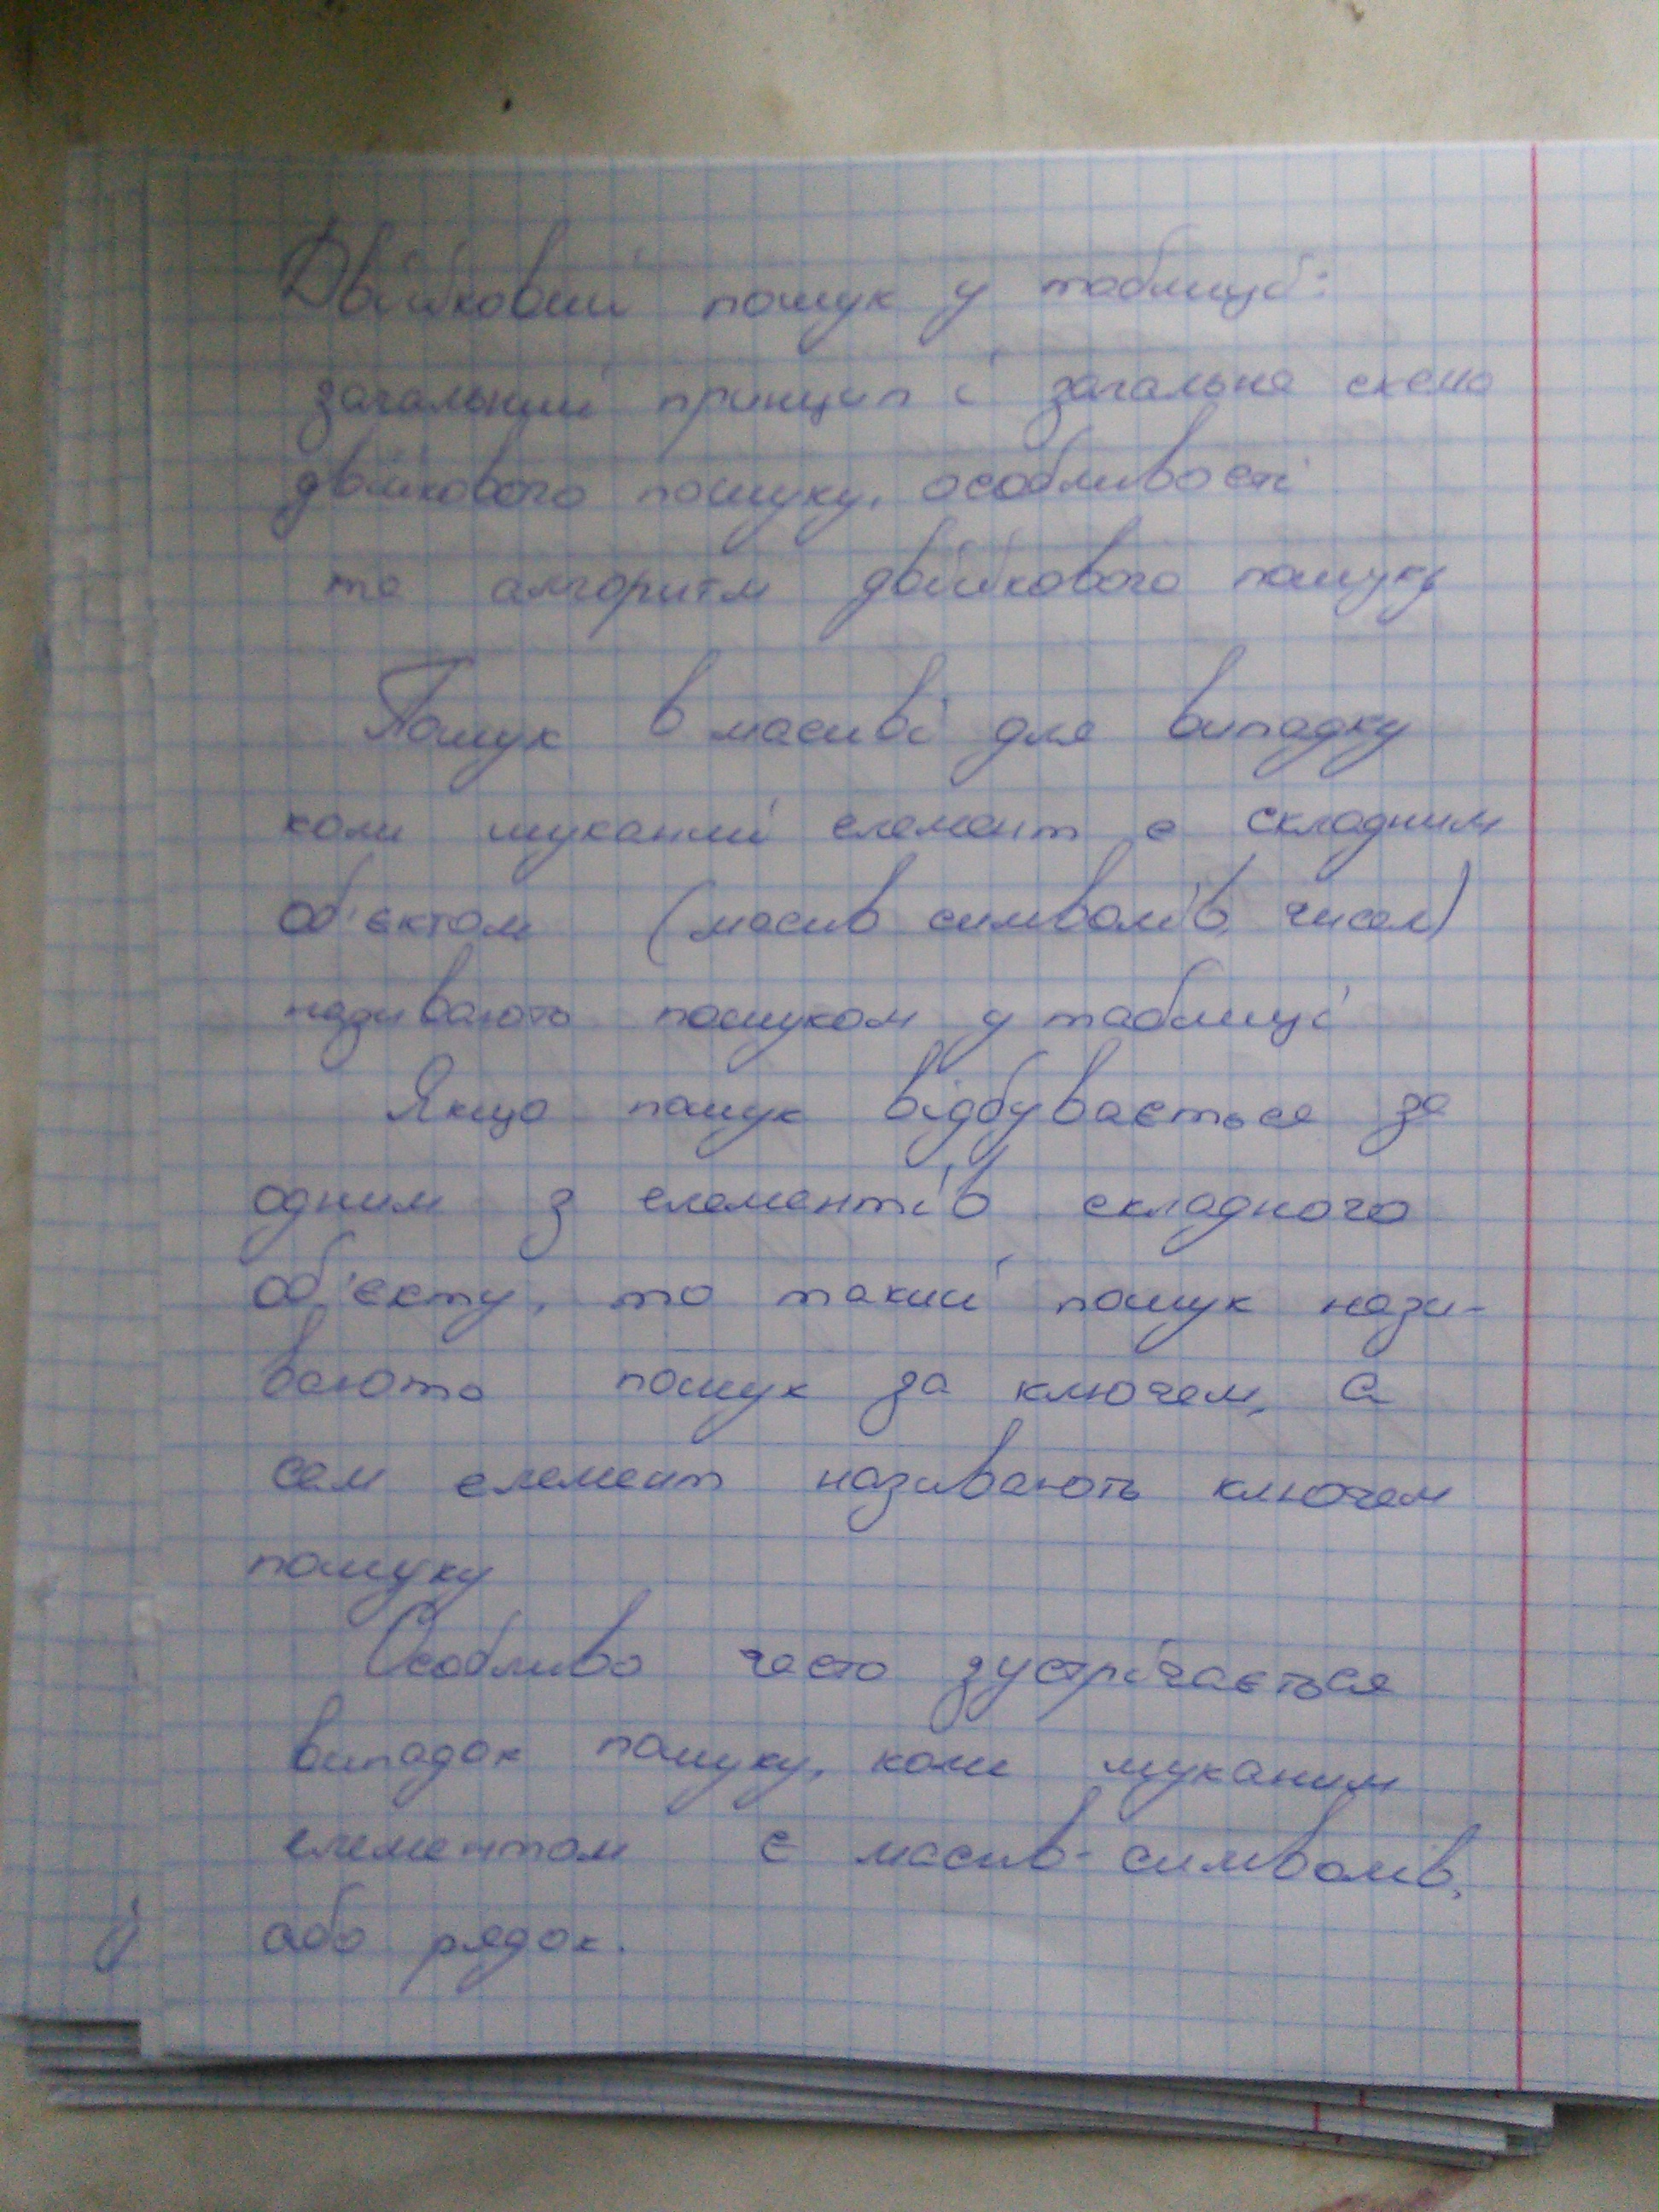 Двійковий пошук у таблиці:
загальний принцип і загальна схема
двійкового пошуку, особливості
та алгоритм двійкового пошуку
Пошук в масиві для випадку
коли шуканий елемент є складним
об'єктом (масив символів, чисел)
називають пошуком у таблиці
Якщо пошук відбувається за
одним з елементів складного
об'єкту, то такий пошук нази-
вають пошук за ключем, а
сам елемент називають ключем
пошуку
Особливо часто зустрічається
випадок пошуку, коли шуканим
елементом є масив символів,
або рядок.